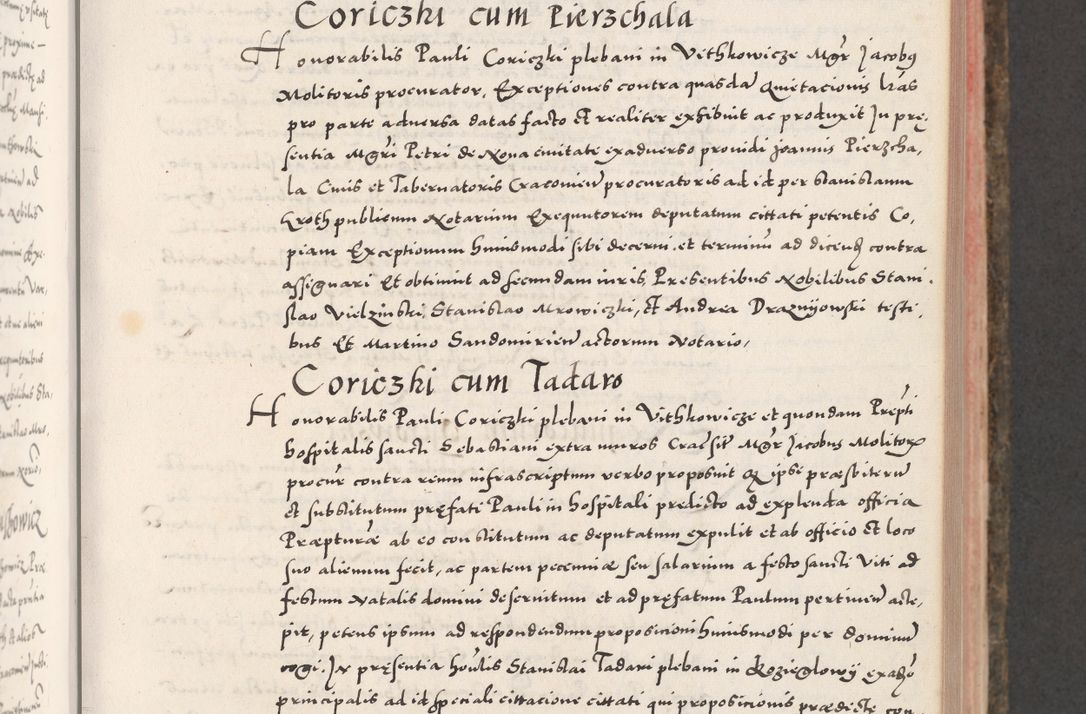 Coriczki cum Pierzchala
Honorabilis Pauli Coriczki plebani in Vithkowicze Mgr Jacobus
Molitoris procurator, Exceptiones contra quasdā Quietacionis lrās
pro parte adversa datas facto et realiter exhibuit ac produxit In prę,
sentia Mgri Petri de Nova civitate exadverso providi Joannis Pierzcha,
la Civis et Tabernatoris Cracovien procuratoris ad id per Stanislaum
Groth publicum Notarium Exequutorem deputatum cittati petentis Co,
piam Exceptionum huiusmodi sibi decerni et terminū ad dicend contra
assignari Et obtinuit ad secundam iuris, Presentibus Nobilibus Stani,
slao Vielzinski, Stanislao Mrowiczki, et Andrea Draznijowski testi,
bus Et Martino Sandomirien actorum Notario,
Coriczki cum Tadaro
Honorabilis Pauli Coriczki plebani in Vithkowicze et quondam Prepti
hospitalis sancti Sebastiani extra muros Crac sit Mgr Jacobus Molitoris
procur contra reum infrascriptum verbo proposuit Q ipse præsbiterū
et substitutum pręfati Pauli in hospitali predicto ad explenda officia
Præpturæ ab eo constitutum ac deputatum expulit et ab officio et loco
suo alienum fecit, ac partem pecuniæ seu salarium a festo sancti Viti ad
festum Natalis domini deservitum et ad pręfatum Paulum pertinen acce,
pit, petens ipsum ad respondendum proposicioni huiusmodi per dominū
cogi. In pręsentia honlis Stanislai Tadari plebani in Kozieglowÿ exadso
principalis ad id speciali cittacione cittati qui proposicionis prædicte con